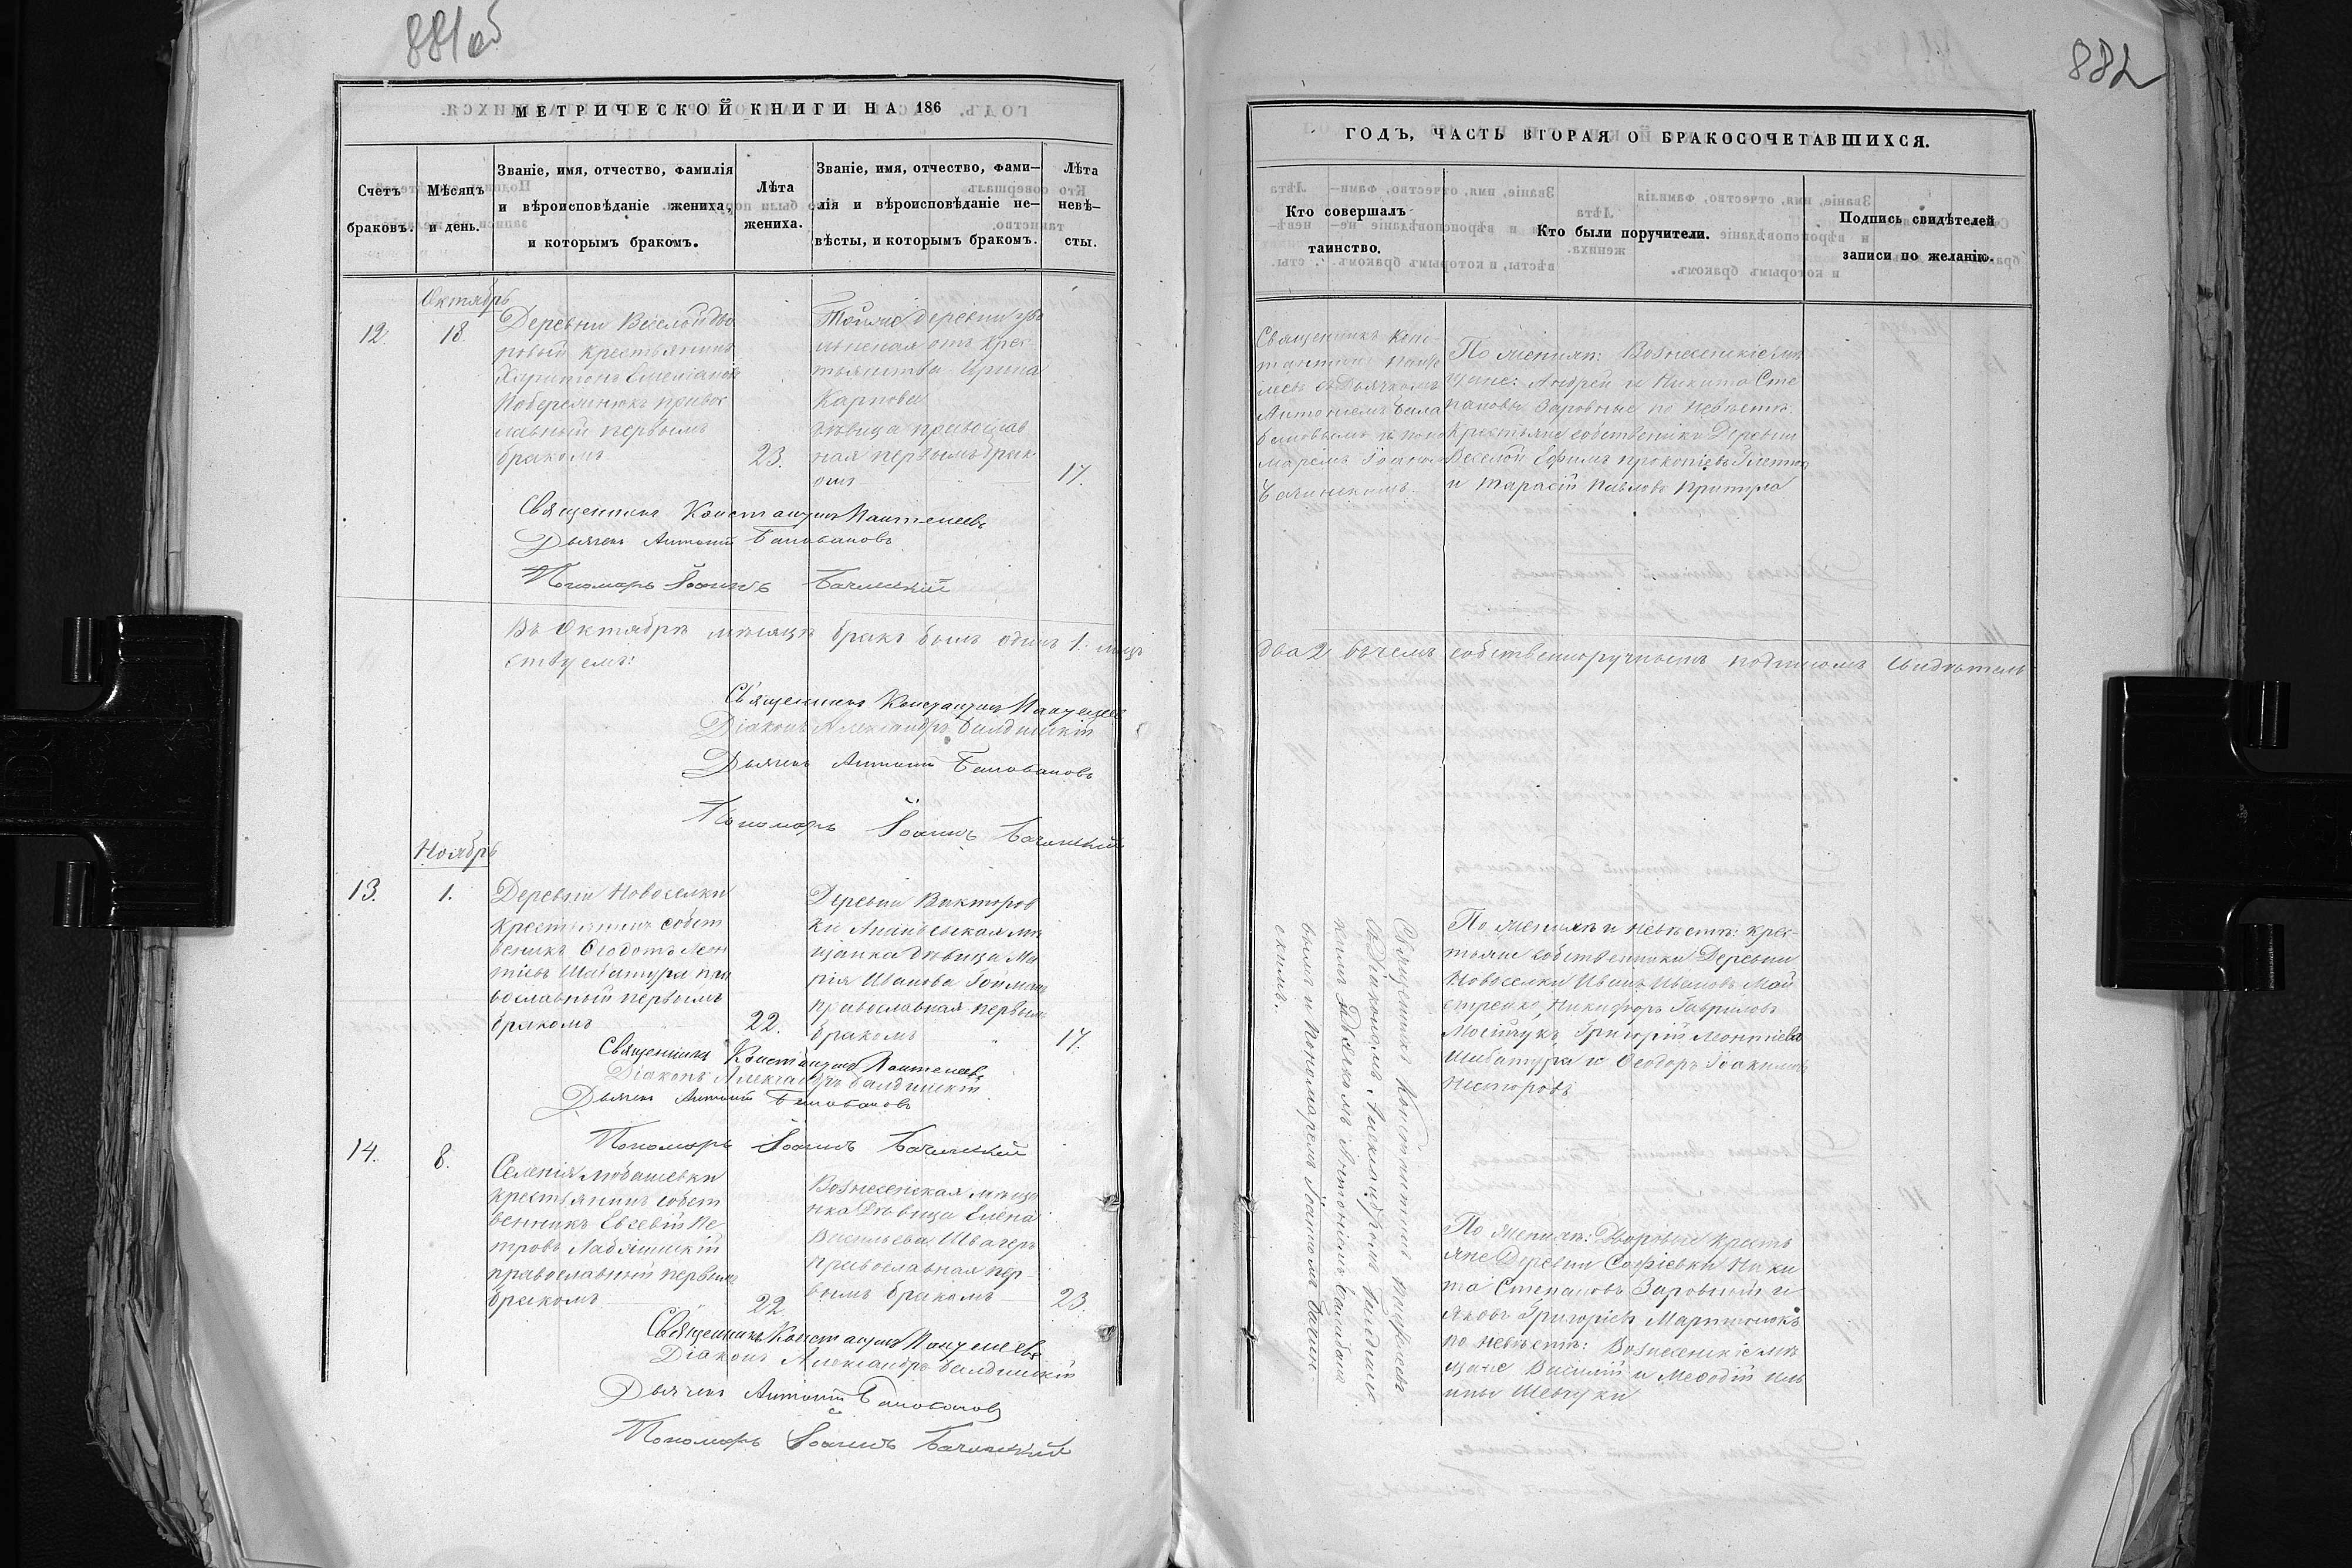 881об
МЕТРИЧЕСКОЙ КНИГИ НА 186
Счетъ браковъ.
Мѣсяцъ и день.
Званіе, имя, отчество, фамилія
и вѣроисповѣданіе жениха,
и которымъ бракомъ.
Лѣта
жениха.
Званіе, имя, отчество, фами-
лія и вѣроисповѣданіе не-
вѣсты, и которымъ бракомъ.
Лѣта
невѣ-
сты.
Октябрь
12.
18.
Деревни Веселой дво
ровый крестьянинъ
Харитонъ Емеліановъ
Побережнюкъ правос
лавный первымъ
бракомъ
23.
Тойже деревни уво
льненая отъ крес
тьянства Ирина
Карпова
дѣвица православ
ная первымъ брак
омъ
17.
Священникъ Константинъ Пантелеевъ
Дьячекъ Антоній Балабановъ
Пономарь Іоаннъ Бачинскій
Въ Октябрѣ мѣсяцѣ бракъ былъ одинъ 1. лицъ
ствуемъ:
Священникъ Константинъ Пантелеевъ
Діаконъ Александръ Балдинскій
Дьячекъ Антоній Балабановъ
Пономарь Іоаннъ Бачинскій
Ноябрь
13.
1.
Деревни Новоселки
крестьянинъ собст
веникъ Ѳеодотъ Леон
тіевъ Шабатура пра
вославный первымъ
бракомъ
22.
Деревни Викторов
ки Ананьевская мѣ
щанка дѣвица Ма
рія Иванова Гойманъ
православная первымъ
бракомъ
17.
Священникъ Константинъ Пантелеевъ
Діаконъ Александръ Балдинскій
Дьячекъ Антоній Балабановъ
Пономарь Іоаннъ Бачинскій
14.
8.
Селенія Любашевки
крестьянинъ собст
венникъ Евсевій Пе
тровъ
православный первымъ
бракомъ
22
Вознесенская мѣща
нка Дѣвица Елена
Васильева Швагеръ
православная пер
вымъ бракомъ
23.
Священникъ Константинъ Пантелеевъ
Діаконъ Александръ Балдинскій
Дьячекъ Антоній Балабановъ
Пономарь Іоаннъ Бачинскій
882
ГОДЪ, ЧАСТЬ ВТОРАЯ О БРАКОСОЧЕТАВШИХСЯ.
Кто совершалъ
таинство.
Кто были поручители.
Подпись свидѣтелей
записи по желанію.
Священникъ Конс
тантинъ Панте
леевъ съ Дьячкомъ
Антоніемъ Бала
бановымъ и поно
маремъ Іоанномъ
Бачинскимъ.
По женихѣ: Вознесенскіе мѣ
щане: Андрей и Никита Сте
пановы Заровные по невѣстѣ:
Крестьяне собственики Деревни
Веселой Ефимъ Прокопіевъ
и Тарасій Павловъ Притула
два 2 въ чемъ собственноручнымъ подписомъ свидѣтель
Священникъ Константинъ Пантелеевъ
съ Діакономъ Александромъ Балдинс
кимъ Дьячкомъ Антоніемъ Балабано
вымъ и Пономаремъ Іоанномъ Бачин
скимъ.
По женихѣ и невѣстѣ: крес
тьяне собственики Деревни
Новоселки Иванъ Ивановъ Май
стренко, Никифоръ Гавриловъ
Мосійчукъ, Григорій Леонтіевъ
Шабатура и Ѳеодоръ Іоакимовъ
Несторовъ
По женихѣ: Дворовые крестья
яне Деревни Софіевки Ники
та Степановъ Заровный и
Яковъ Григоріевъ Мартинюкъ
по невѣстѣ: Вознесенскіе мѣ
щане Василій и Меѳодій Иль
ины Шевчуки